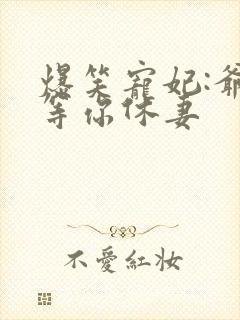 爆笑寵妃:爺
等你休妻
不愛紅妝